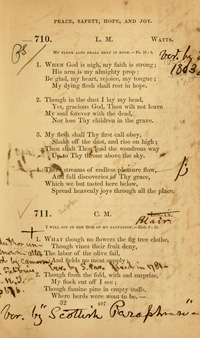 PEACE, SAFETY, HOPE, AND JOY.
710. L. M. WATTS.
MY FLESH ALSO SHALL REST IN HOPE.
1. WHEN God is nigh, my faith is strong;
His arm is my almighty prop:
Be glad, my heart, rejoice, my tongue;
My dying flesh shall rest in hope.
2. Though in the dust I lay my head,
Yet, gracious God, Thou wilt not leave
My soul forever with the dead,
Nor lose Thy children in the grave.
3. My flesh shall Thy first call obey,
Shake off the dust, and rise on high;
Then shalt Thou lead the wondrous way
Up to Thy throne above the sky.
4. There streams of endless pleasure flow,
And full discoveries of Thy grace,
Which we but tasted here below,
Spread heavenly joys through all the place.
711. C. M.
Blair
I WILL JOY IN THE GOD OF MY SALVATION.
1. WHAT though no flowers the fig tree clothe,
Though vines their fruit deny,
The labor of olive fail,
And fields no meat supply;
2. Though from the fold, with sad surprise,
My flock cut off I see;
Though famine pine in empty stalls,
Where herds were wont to be,—
22
ver. "Scottish Paraphrase"